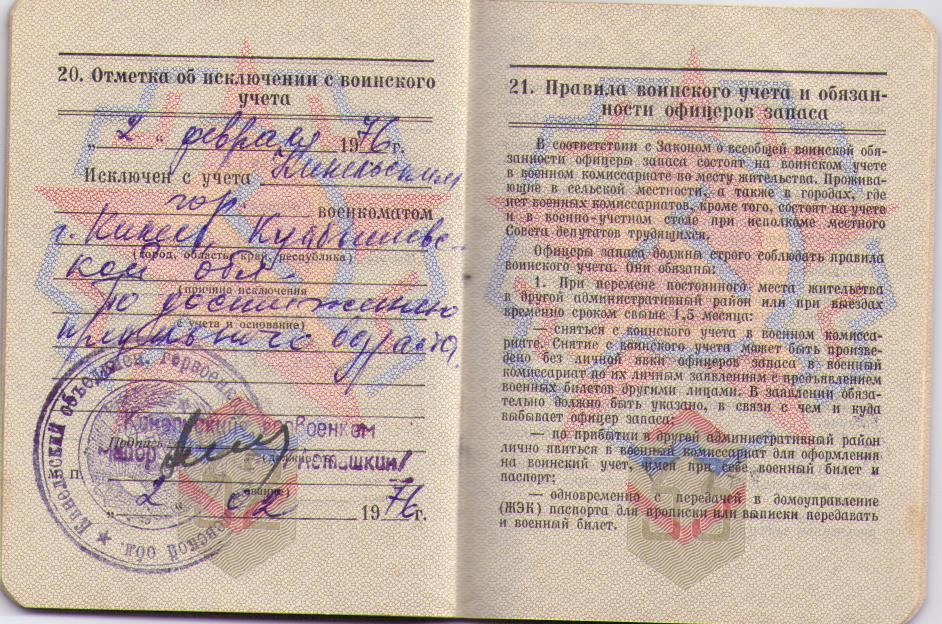 20. Отметка об исключении с воинского
учета
„ 2 “ февраля 1976г.
Исключен с учета Кинельским
гор. военкоматом
г. Кинель, Куйбышевс-
(город, область, край, республика)
кой обл.
(причина исключения
по достижению
с учета и основание)
предельного возраста.
Кинельский горвоенком
Подпись
майор Асташкин/
П.
звание)
„ 2 “ 02 1976г.
Кинельский объединен. горвоенко
вской обл.
21. Правила воинского учета и обязан-
ности офицеров запаса
В соответствии с Законом о всеобщей воинской обя-
занности офицеры запаса состоят на воинском учете
в военном комиссариате по месту жительства. Прожива-
ющие в сельской местности, а также в городах, где
нет военных комиссариатов, кроме того, состоят на учете
и в военно-учетном столе при исполкоме местного
Совета депутатов трудящихся.
Офицеры запаса должны строго соблюдать правила
воинского учета. Они обязаны:
1. При перемене постоянного места жительства
в другой административный район или при выездах
временно сроком свыше 1,5 месяца:
— сняться с воинского учета в военном комисса-
риате. Снятие с воинского учета может быть произве-
дено без личной явки офицеров запаса в военный
комиссариат по их личным заявлениям с предъявлением
военных билетов другими лицами. В заявлении обяза-
тельно должно быть указано, в связи с чем и куда
выбывает офицер запаса;
— по прибытии в другой административный район
лично явиться в военный комиссариат для оформления
на воинский учет, имея при себе военный билет и
паспорт;
— одновременно с передачей в домоуправление
(ЖЭК) паспорта для прописки или выписки передавать
и военный билет.